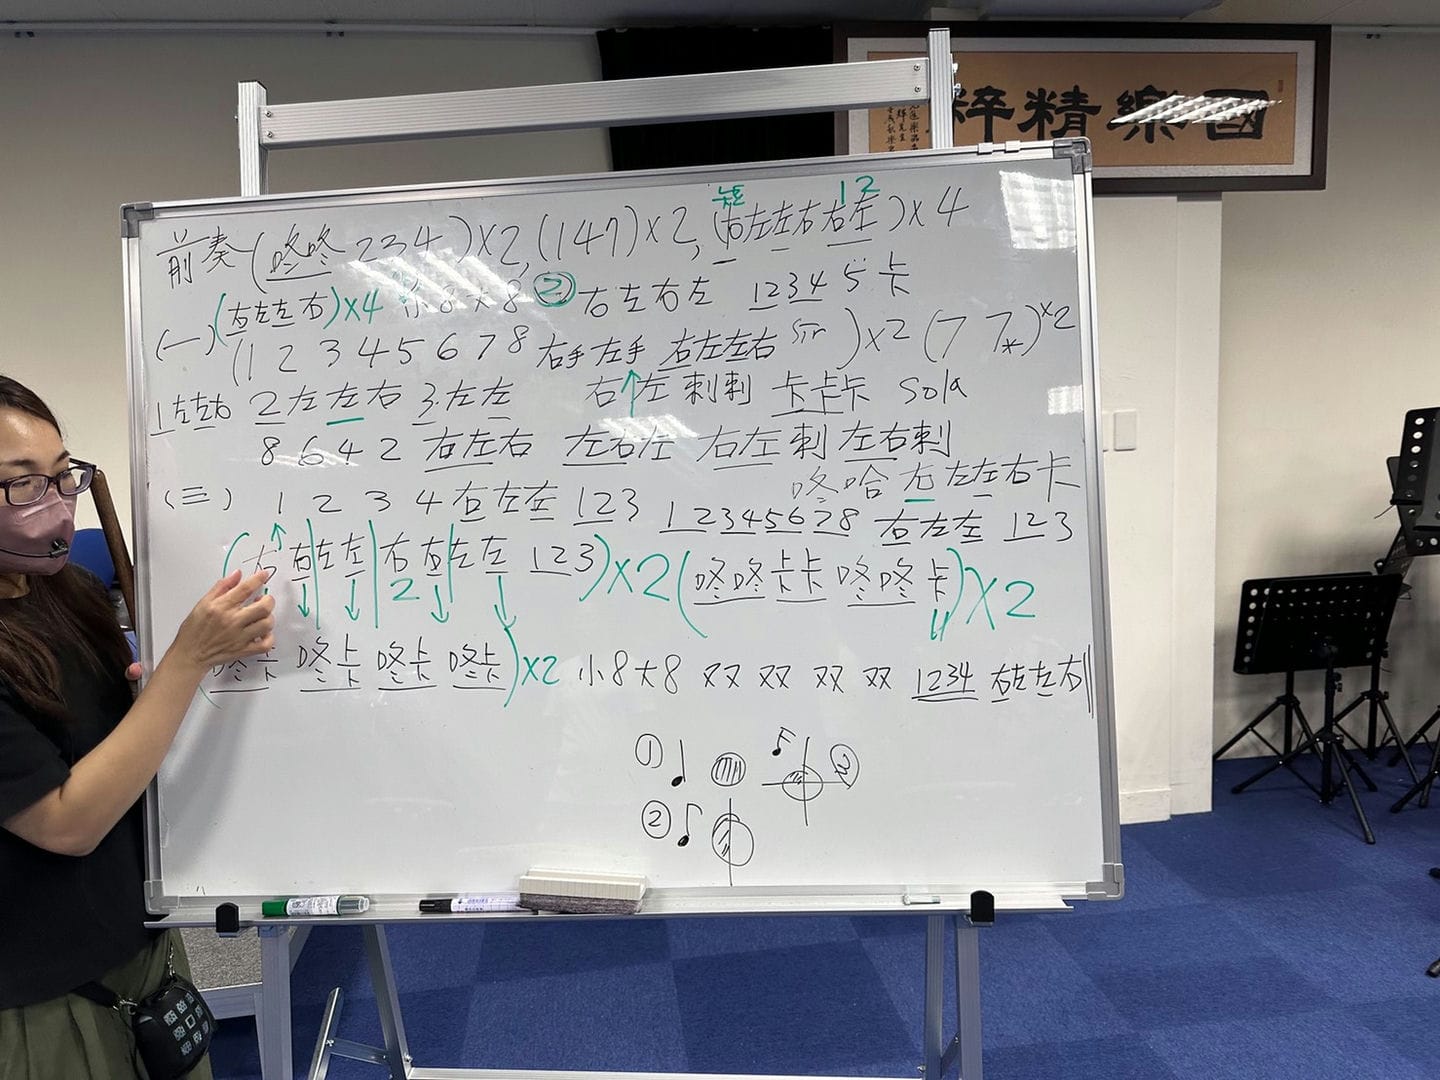 國樂精粹
短 12
前奏(咚咚 234)×2,(147)×2,(右左左右右左)×4
(右左左右)×4 小8大8 ② 右左右左 1234 5 卡
(一)(1 2 3 4 5 6 7 8 右手左手 右左左右 sir )×2 (7 7*)×2
1左左右 2左左右 3左左 右↑左 刺刺 卡卡卡 sola
8 6 4 2 右左右 左右左 右左刺 左右刺
咚哈右左左右卡
(三) 1 2 3 4 右左左 123 12345678 右左左 123
(右右左左 右右左左 123)×2(咚咚卡卡咚咚卡)×2
2
(咚卡 咚卡 咚卡 咚卡)×2 小8大8 双双双双 1234 右左左右
① ♩ ②
② ♪